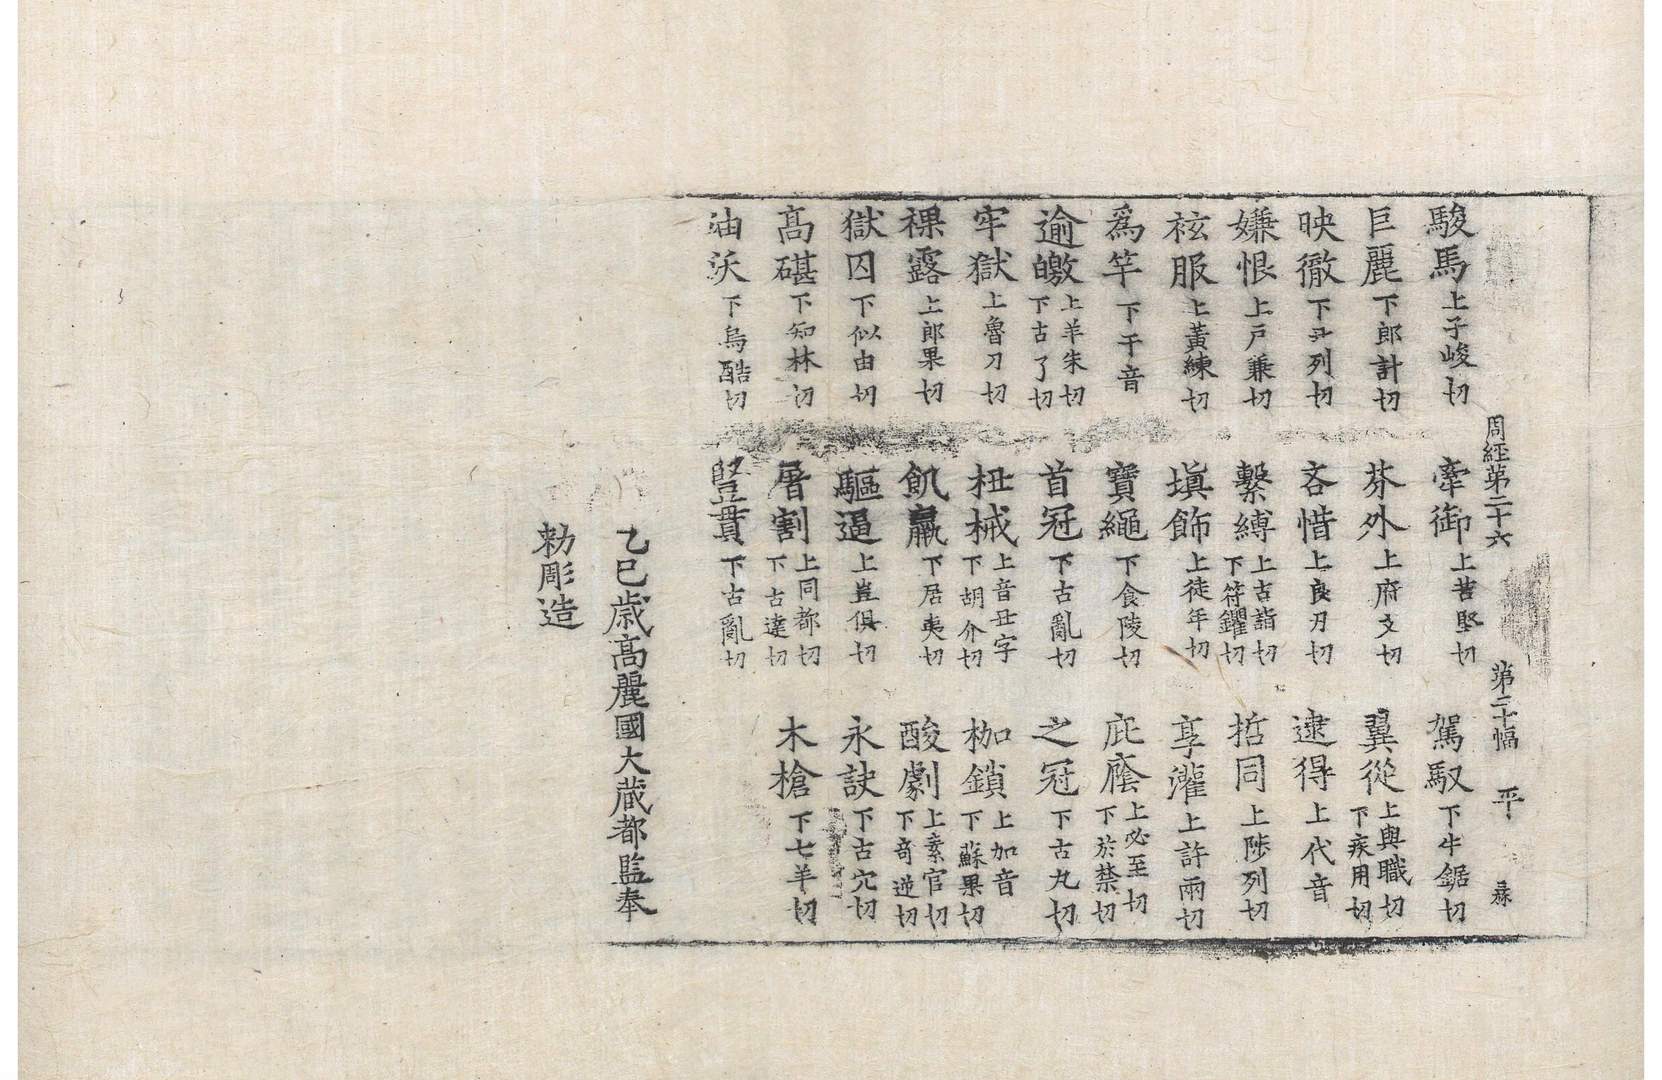 周経第二十六 第二十幅 平 㷼
駿馬上子峻切 牽御上苦堅切 駕馭下牛鋸切
巨麗下郎計切 芬外上府文切 翼從上與職切下疾用切
映徹下尹列切 吝惜上良刃切 逮得上代音
嫌恨上戸兼切 繫縛上古詣切下符钁切 哲同上陟列切
袨服上黃練切 塡飾上徒年切 享灌上許兩切
爲竿下干音 寶繩下食陵切 庇廕上必至切下於禁切
逾皦上羊朱切下古了切 首冠下古亂切 之冠下古丸切
牢獄上魯刀切 杻械上音丑字下胡介切 枷鎖上加音下蘇果切
裸露上郎果切 飢羸下居夷切 酸劇上素官切下奇逆切
獄囚下似由切 驅逼上豈俱切 永訣下古穴切
髙碪下知林切 屠割上同都切下古達切 木槍下七羊切
油沃下烏酷切 豎貫下古亂切
乙巳歳髙麗國大蔵都監奉
勑彫造